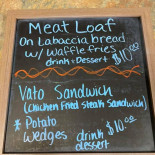 Meat Loaf
On Labaccia bread
w/ Waffle fries
drink + Dessert $10.00
Vato Sandwich
(Chicken Fried steak Sandwich)
* Potato
Wedges drink $10.00
dessert